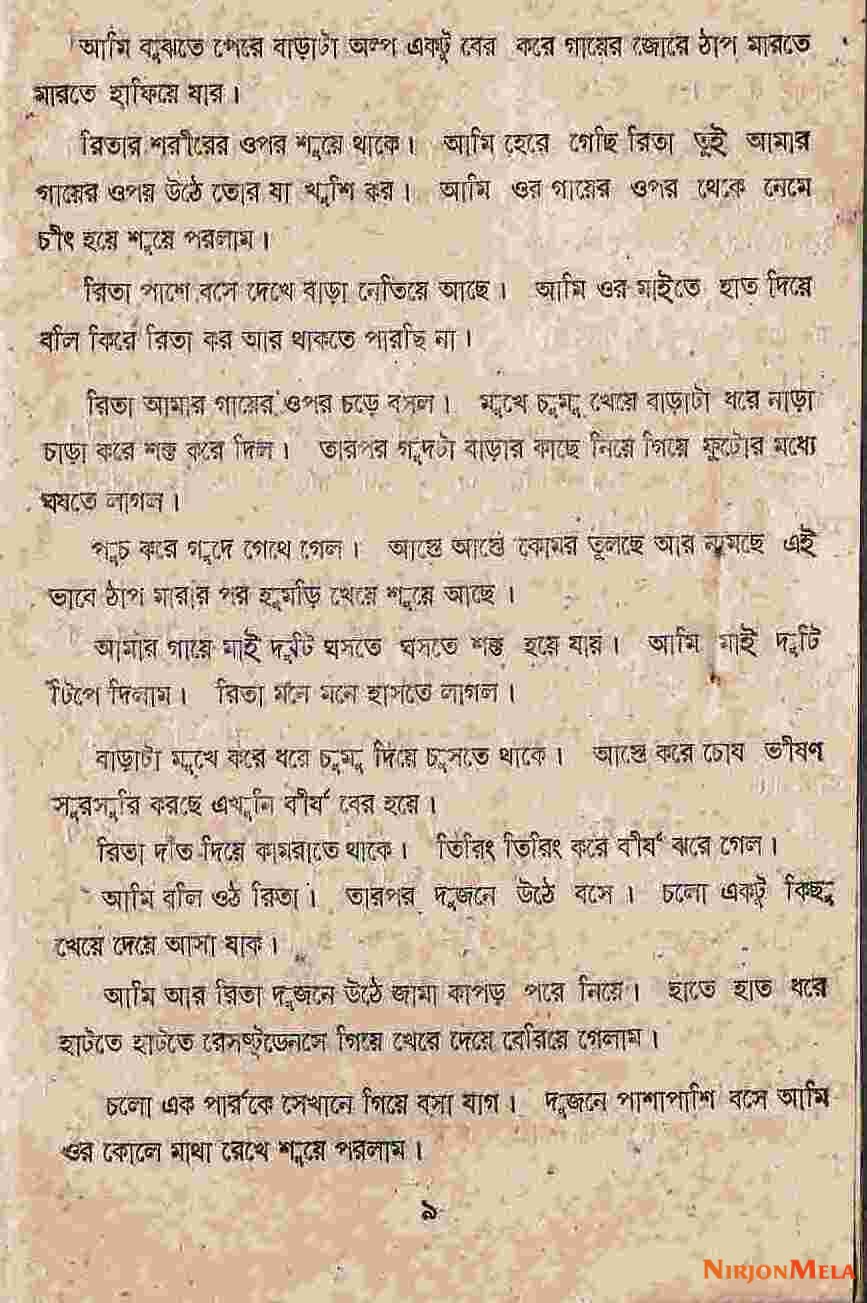 আমি বুঝতে পেরে বাড়াটা অল্প একটু বের করে গায়ের জোরে ঠাপ মারতে
মারতে হাফিয়ে যার।
রিতার শরীরের ওপর শুয়ে থাকে। আমি হেরে গেছি রিতা তুই আমার
গায়ের ওপর উঠে তোর যা খুশি কর। আমি ওর গায়ের ওপর থেকে নেমে
চীৎ হয়ে শুয়ে পরলাম।
রিতা পাশে বসে দেখে বাড়া নেতিয়ে আছে। আমি ওর মাইতে হাত দিয়ে
বলি কিরে রিতা কর আর থাকতে পারছি না।
রিতা আমার গায়ের ওপর চড়ে বসল। মুখে চুমু খেয়ে বাড়াটা ধরে নাড়া
চাড়া করে শক্ত করে দিল। তারপর গুদটা বাড়ার কাছে নিয়ে গিয়ে ফুটোর মধ্যে
ঘষতে লাগল।
পুচ করে গুদে গেথে গেল। আস্তে আস্তে কোমর তুলছে আর নামছে এই
ভাবে ঠাপ মারার পর হুমড়ি খেয়ে শুয়ে আছে।
আমার গায়ে মাই দুটি ঘসতে ঘসতে শক্ত হয়ে যায়। আমি মাই দুটি
টিপে দিলাম। রিতা মনে মনে হাসতে লাগল।
বাড়াটা মুখে করে ধরে চুমু দিয়ে চুসতে থাকে। আস্তে করে চোষ ভীষণ
সুরসুরি করছে এখুনি বীর্য বের হয়ে।
রিতা দাঁত দিয়ে কামরাতে থাকে। তিরিং তিরিং করে বীর্য ঝরে গেল।
আমি বলি ওঠ রিতা। তারপর দুজনে উঠে বসে। চলো একটু কিছু
খেয়ে দেয়ে আসা যাক।
আমি আর রিতা দুজনে উঠে জামা কাপড় পরে নিয়ে। হাতে হাত ধরে
হাটতে হাটতে রেসষ্টুডেনসে গিয়ে খেরে দেয়ে বেরিয়ে গেলাম।
চলো এক পার্কে সেখানে গিয়ে বসা যাগ। দুজনে পাশাপাশি বসে আমি
ওর কোলে মাথা রেখে শুয়ে পরলাম।
৯
NIRJONMELA